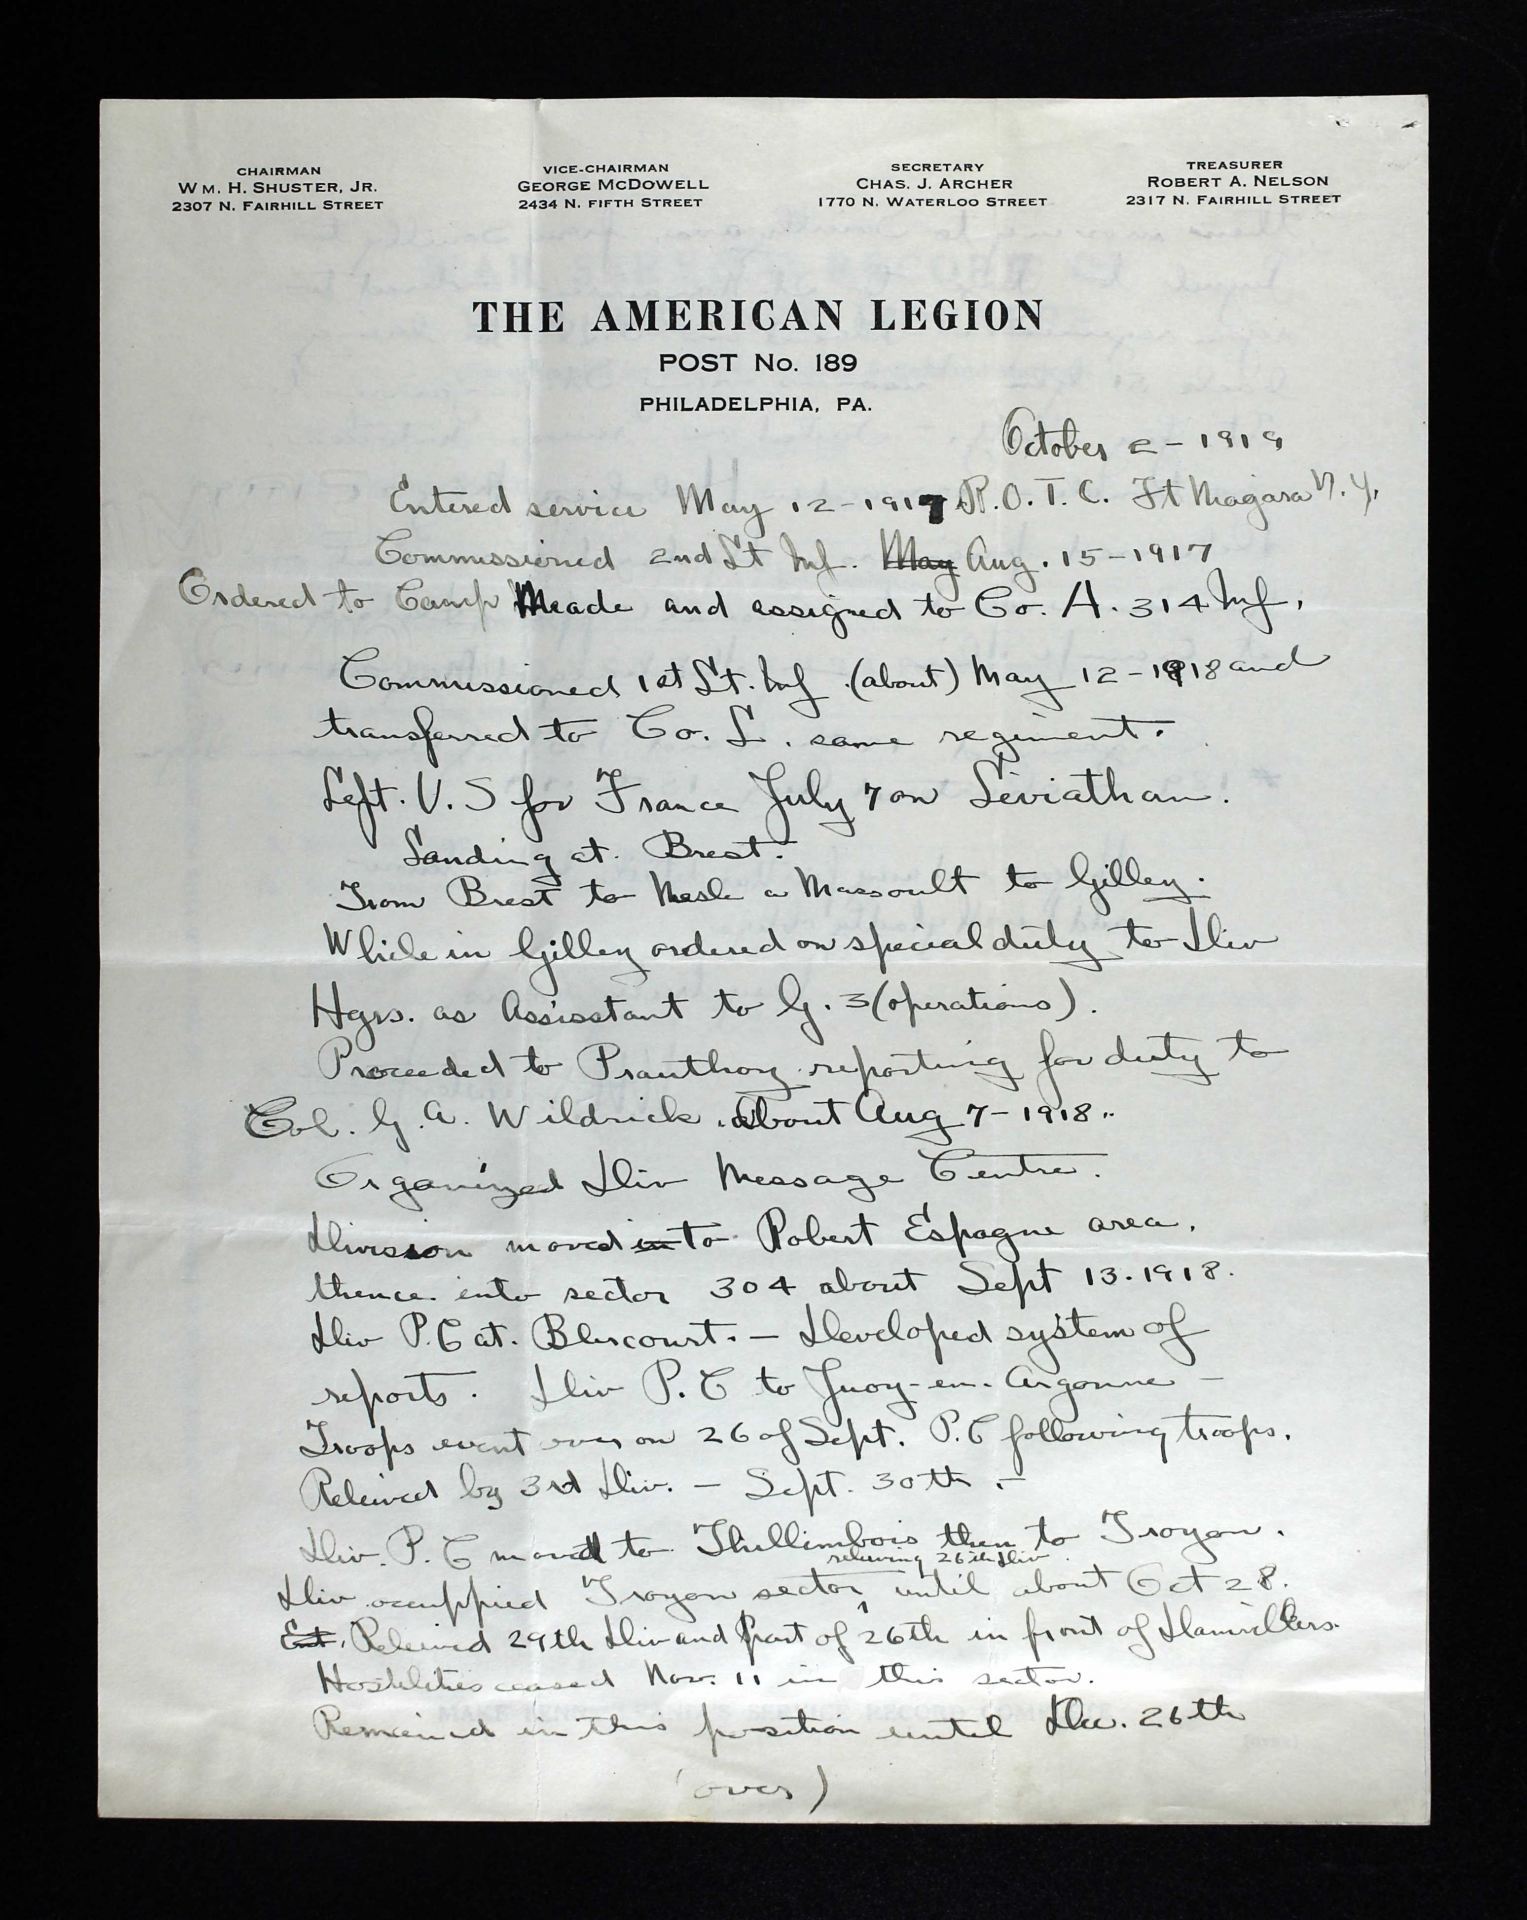 CHAIRMAN
WM. H. SHUSTER, JR.
2307 N. FAIRHILL STREET
VICE-CHAIRMAN
GEORGE MCDOWELL
2434 N. FIFTH STREET
SECRETARY
CHAS. J. ARCHER
1770 N. WATERLOO STREET
TREASURER
ROBERT A. NELSON
2317 N. FAIRHILL STREET
THE AMERICAN LEGION
POST No. 189
PHILADELPHIA, PA.
October 2 - 1919
Entered service May 12 - 1917 R.O.T.C. Ft Niagara N.Y.
Commissioned 2nd Lt Inf. May Aug. 15 - 1917
Ordered to Camp Meade and assigned to Co. A. 314 Inf.
Commissioned 1st Lt. Inf (about) May 12 - 1918 and
transferred to Co. L. same regiment.
Left. U.S for France July 7 on Leviathan.
Landing at. Brest.
From Brest to Nesle a Massoult to Gilley.
While in Gilley ordered on special duty to Div
Hqrs. as Assistant to G. 3 (operations).
Proceeded to Prauthoy reporting for duty to
Col. G. A. Wildrick. About Aug 7 - 1918.
Organized Div Message Centre.
Division moved in to Robert Espagne area,
thence into sector 304 about Sept 13. 1918.
Div P.C at. Blercourt. - Developed system of
reports. Div P.C to Juoy-en-Argonne -
Troops went over on 26 of Sept. P.C following troops.
Releived by 3rd Div. - Sept. 30th. -
Div. P.C moved to Thillimbois then to Troyon.
relieving 26th Div.
Div occuppied Troyon sector, until about Oct 28.
Ent. Releived 29th Div and part of 26th in front of Damvillers.
Hostilities ceased Nov. 11 in this sector.
Remained in this position until Dec. 26th
(over)